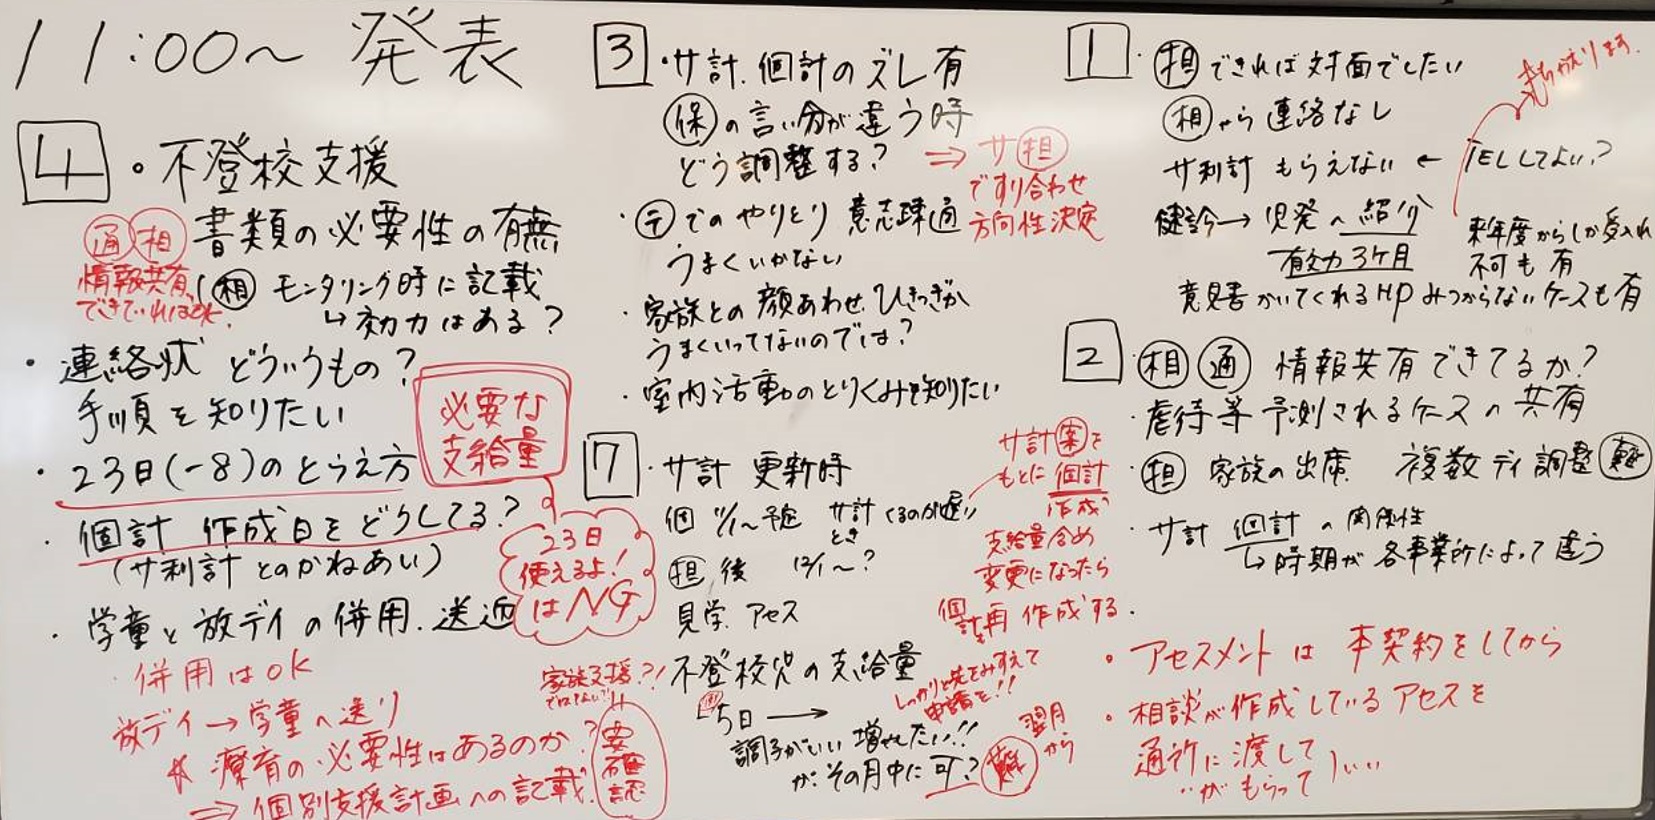 11:00～ 発表
4
・不登校支援
通 相 書類の必要性の有無
情報共有
できていればOK.
(相) モニタリング時に記載
↳ 効力はある?
・連絡状 どういうもの?
手順を知りたい
・23日(-8)のとらえ方
必要な
支給量
23日
使えるよ!
はNG
・個計 作成日をどうしてる?
(サ利計 とのかねあい)
・学童と放デイの併用.送迎
・併用はOK
放デイ→学童へ送り
療育の必要性はあるのか?
⇒個別支援計画への記載.
要確認
家族支援?!
3
・サ計.個計のズレ有
(保)の言い分が違う時
どう調整する?
⇒ サ(担)
ですり合わせ
方向性決定
・(テ)でのやりとり 意志疎通
うまくいかない
・家族との顔あわせ.ひきつぎが
うまくいってないのでは?
・室内活動のとりくみを知りたい
7
・サ計 更新時
個 11/1～予定 サ計くるのが遅い
とき
(担) 後 12/1～?
見学. アセス
サ計(案)を
もとに個計
作成
支給量含め
変更になったら
個計を再作成する.
不登校児の支給量
しっかりと先をみすえて
申請を!!
5日 →
調子がいい 増やしたい!!
が、その月中に可?
(難)
翌月
から
1
・(担)できれば対面でしたい
(相)から連絡なし
サ利計 もらえない ← TELしてよい?
もちろんです.
健診→児発へ紹介
有効力3ケ月
来年度からしか受入れ
不可も有
意見書かいてくれるHP みつからないケースも有
2
・(相)(通) 情報共有できてるか?
・虐待等予測されるケースの共有
・(担) 家族の出席. 複数デイ調整(難)
・サ計 個計の関係性
↳時期が各事業所によって違う
・アセスメントは 本契約をしてから
・相談が作成しているアセスを
通所に渡して
〃がもらって
)いい